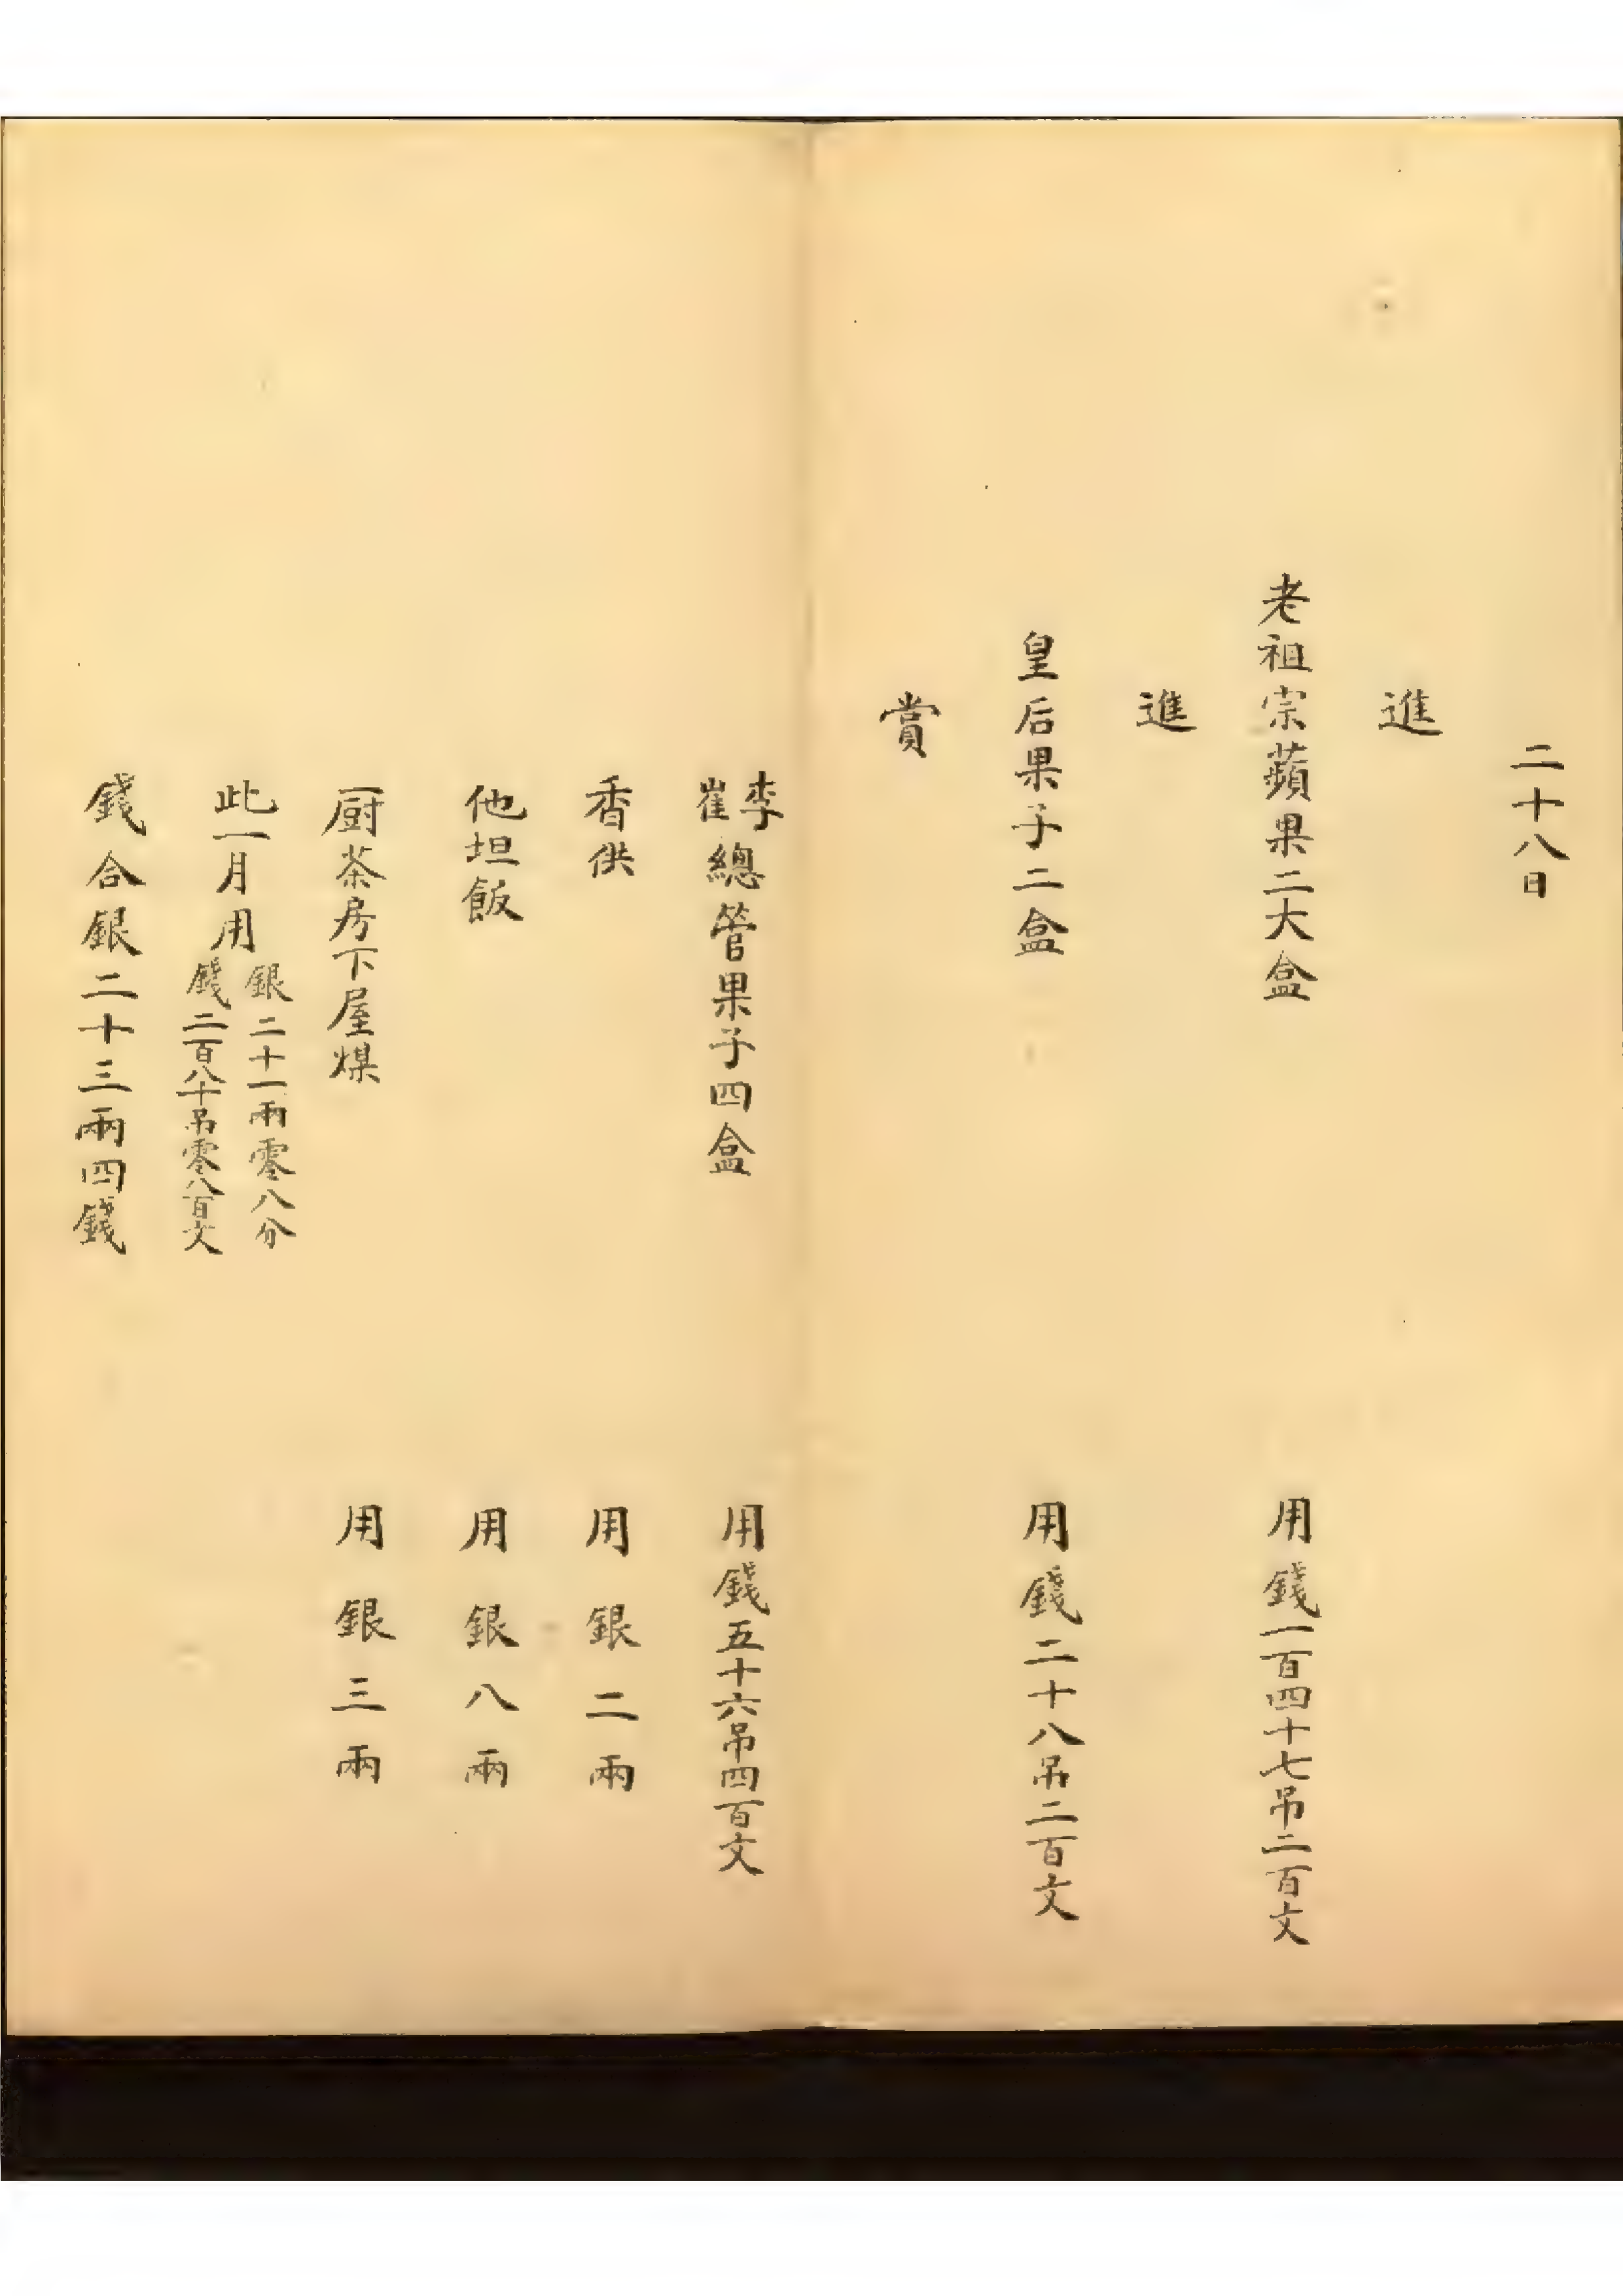 二十八日
進
老祖宗蘋果二大盒　用錢一百四十七吊二百文
進
皇后果子二盒　用錢二十八吊二百文
賞
李崔總管果子四盒　用錢五十六吊四百文
香供　用銀二兩
他坦飯　用銀八兩
厨茶房下屋煤　用銀三兩
此一月用銀二十一兩零八分錢二百八十吊零八百文
錢合銀二十三兩四錢